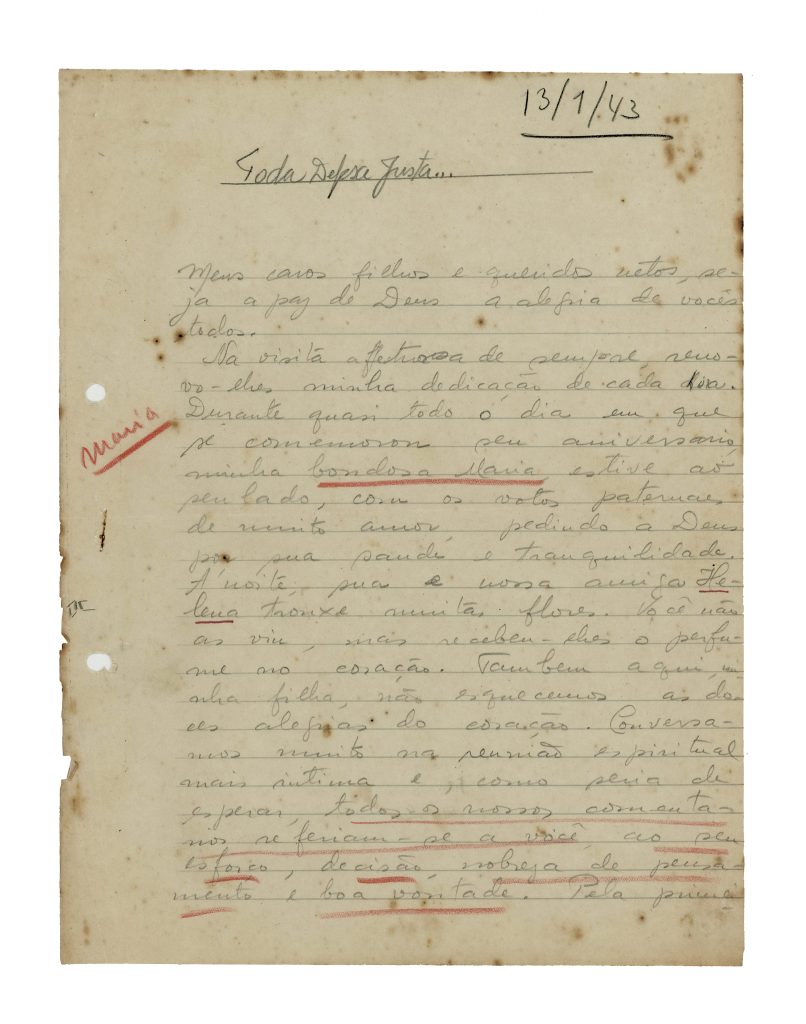 13/1/43
Toda Defesa Justa...
Meus caros filhos e queridos netos, se-
ja a paz de Deus a alegria de vocês
todos.
Na visita affectuosa de sempre, reno-
vo-lhes minha dedicação de cada dia.
Durante quasi todo o dia em que
se comemorou seu aniversario,
minha bondosa Maria, estive ao
seu lado, com os votos paternaes
de muito amor, pedindo a Deus
por sua saude e tranquilidade.
Maria
A' noite, sua e nossa amiga He-
lena trouxe muitas flores. Você não
as viu, mas recebeu-lhes o perfu-
me no coração. Tambem aqui, mi-
nha filha, não esquecemos as do-
ces alegrias do coração. Conversa-
mos muito na reunião espiritual
mais intima e, como seria de
esperar, todos os nossos comenta-
rios referiam-se a você, ao seu
esforço, decisão, nobreza de pensa-
mento e boa vontade. Pela primei